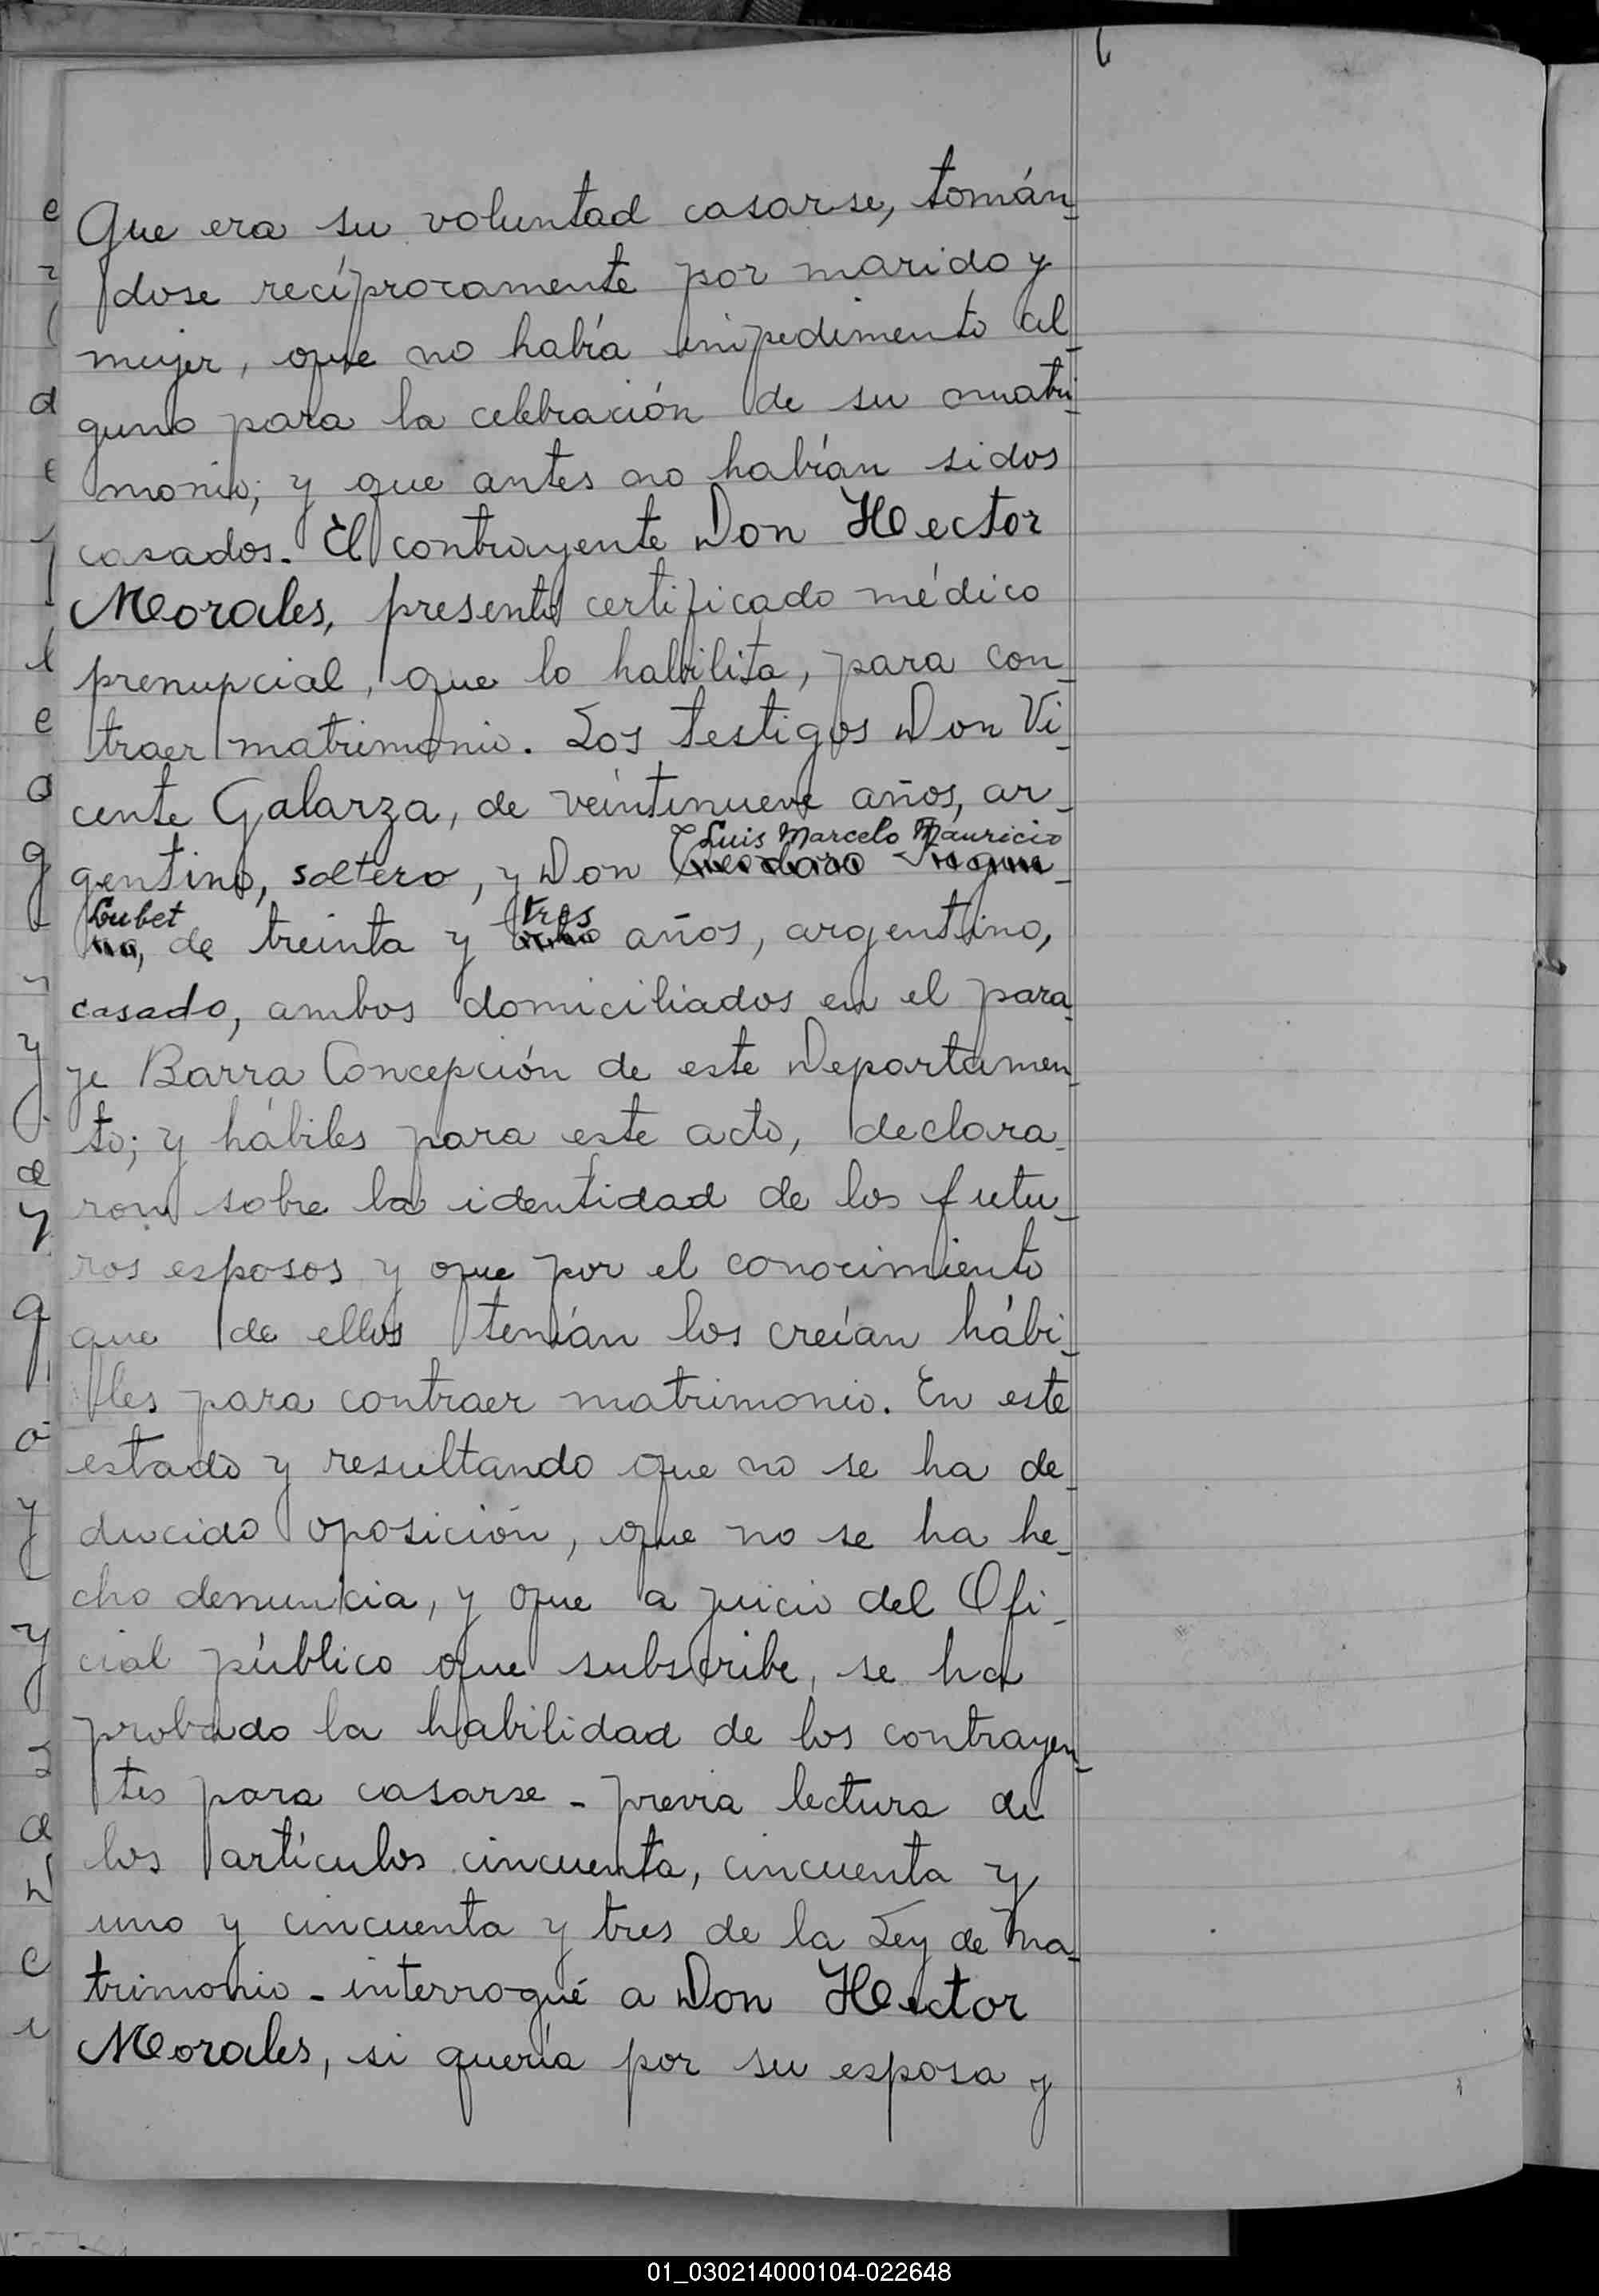 Que era su voluntad casarse, tomán-
dose recíprocamente por marido y
mujer, que no había impedimento al-
guno para la celebración de su matri-
monio; y que antes no habían sidos
casados. El contrayente Don Hector
Morales, presentó certificado médico
prenupcial, que lo habilita, para con-
traer matrimonio. Los testigos Don Vi-
cente Galarza, de veintinueve años, ar-
Luis Marcelo Mauricio
gentino, soltero, y Don
Lubet tres
de treinta y años, argentino,
casado, ambos domiciliados en el para-
je Barra Concepción de este Departamen-
to; y hábiles para este acto, declara-
ron sobre la identidad de los futu-
ros esposos y que por el conocimiento
que de ellos tenían los creían hábi-
les para contraer matrimonio. En este
estado y resultando que no se ha de-
ducido oposición, que no se ha he-
cho denuncia, y que a juicio del Ofi-
cial público que subscribe, se ha
probado la habilidad de los contrayen-
tes para casarse - previa lectura de
los artículos cincuenta, cincuenta y
uno y cincuenta y tres de la Ley de Ma-
trimonio - interrogué a Don Hector
Morales, si quería por su esposa y
01_030214000104-022648